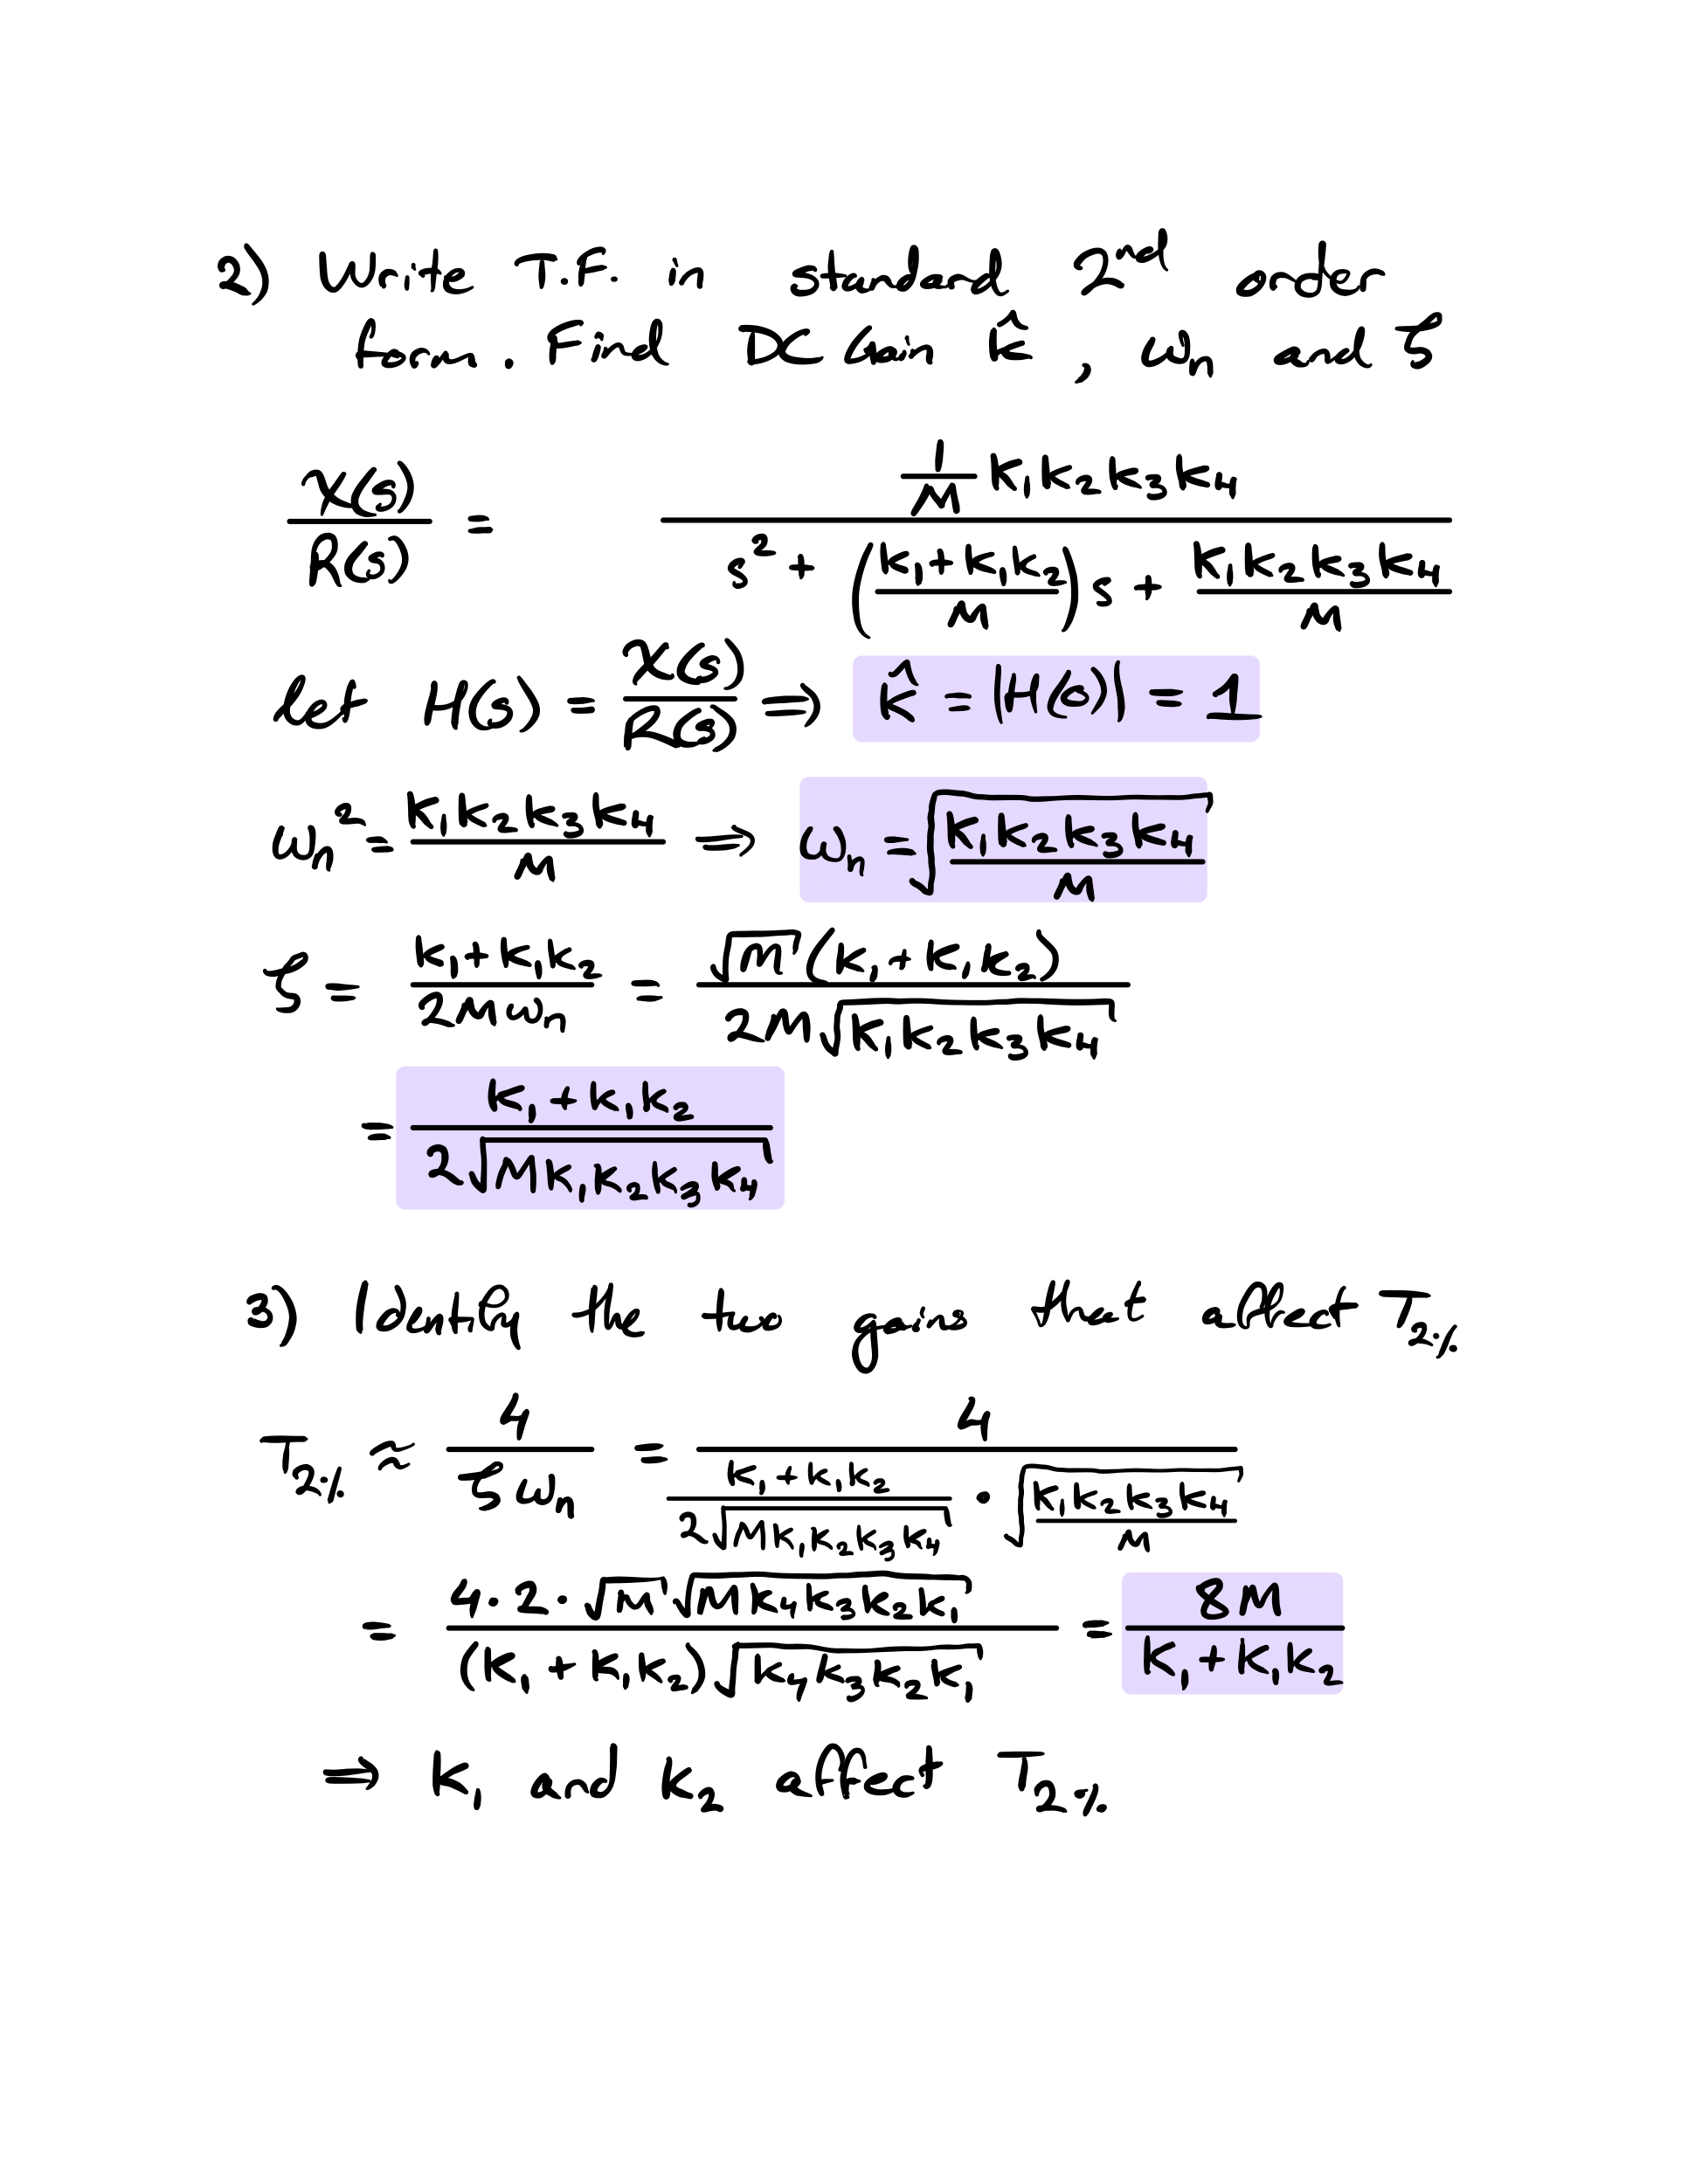 2) Write T.F. in standard 2nd order
form. Find DC Gain K̂, ωn and ζ
X(s)/R(s) = (1/M K₁K₂K₃K₄) / (s² + ((K₁+K₁K₂)/M)s + K₁K₂K₃K₄/M)
let H(s) = X(s)/R(s) ⟹ K̂ = |H(0)| = 1
ωn² = K₁K₂K₃K₄/M ⟹ ωn = √(K₁K₂K₃K₄/M)
ζ = (K₁+K₁K₂)/(2Mωn) = √M(K₁+K₁K₂)/(2M√(K₁K₂K₃K₄))
= (K₁+K₁K₂)/(2√(MK₁K₂K₃K₄))
3) Identify the two gains that affect T2%
T2% ≈ 4/(ζωn) = 4/((K₁+K₁K₂)/(2√(MK₁K₂K₃K₄)) · √(K₁K₂K₃K₄/M))
= (4·2·√M√(MK₄K₃K₂K₁))/((K₁+K₁K₂)√(K₄K₃K₂K₁)) = 8M/(K₁+K₁K₂)
⟹ K₁ and K₂ affect T2%